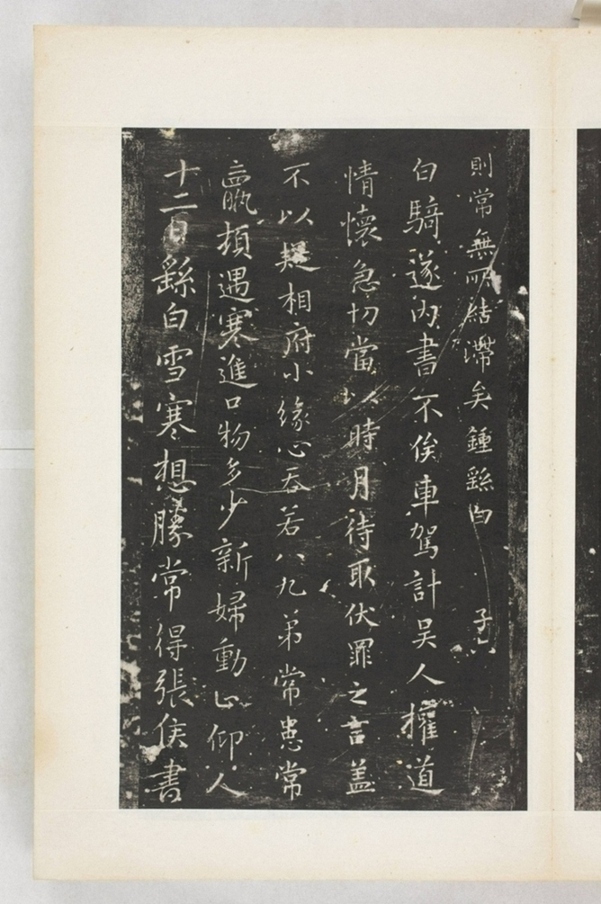 則常無所結滯矣鍾繇白　子六
白騎遂內書不俟車駕計吳人權道
情懷急切當以時月待取伏罪之言蓋
不以疑相府小緣心吞若八九弟常患常
羸頓遇寒進口物多少新婦動止仰人
十二日繇白雪寒想勝常得張侯書